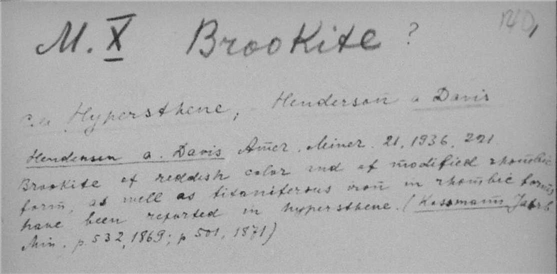 140,
M. X Brookite ?
Hypersthene, - Henderson a Davis
Henderson a. Davis Amer. Miner. 21, 1936, 221
Brookite of reddish color and of modified rhombic
form, as well as titaniferous iron in rhombic forms
have been reported in hypersthene. (Kossmann Jahrb
Min. p 532, 1869; p 501, 1871)